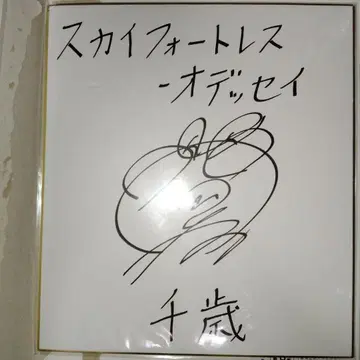 スカイフォートレス
-オデッセイ
千歳